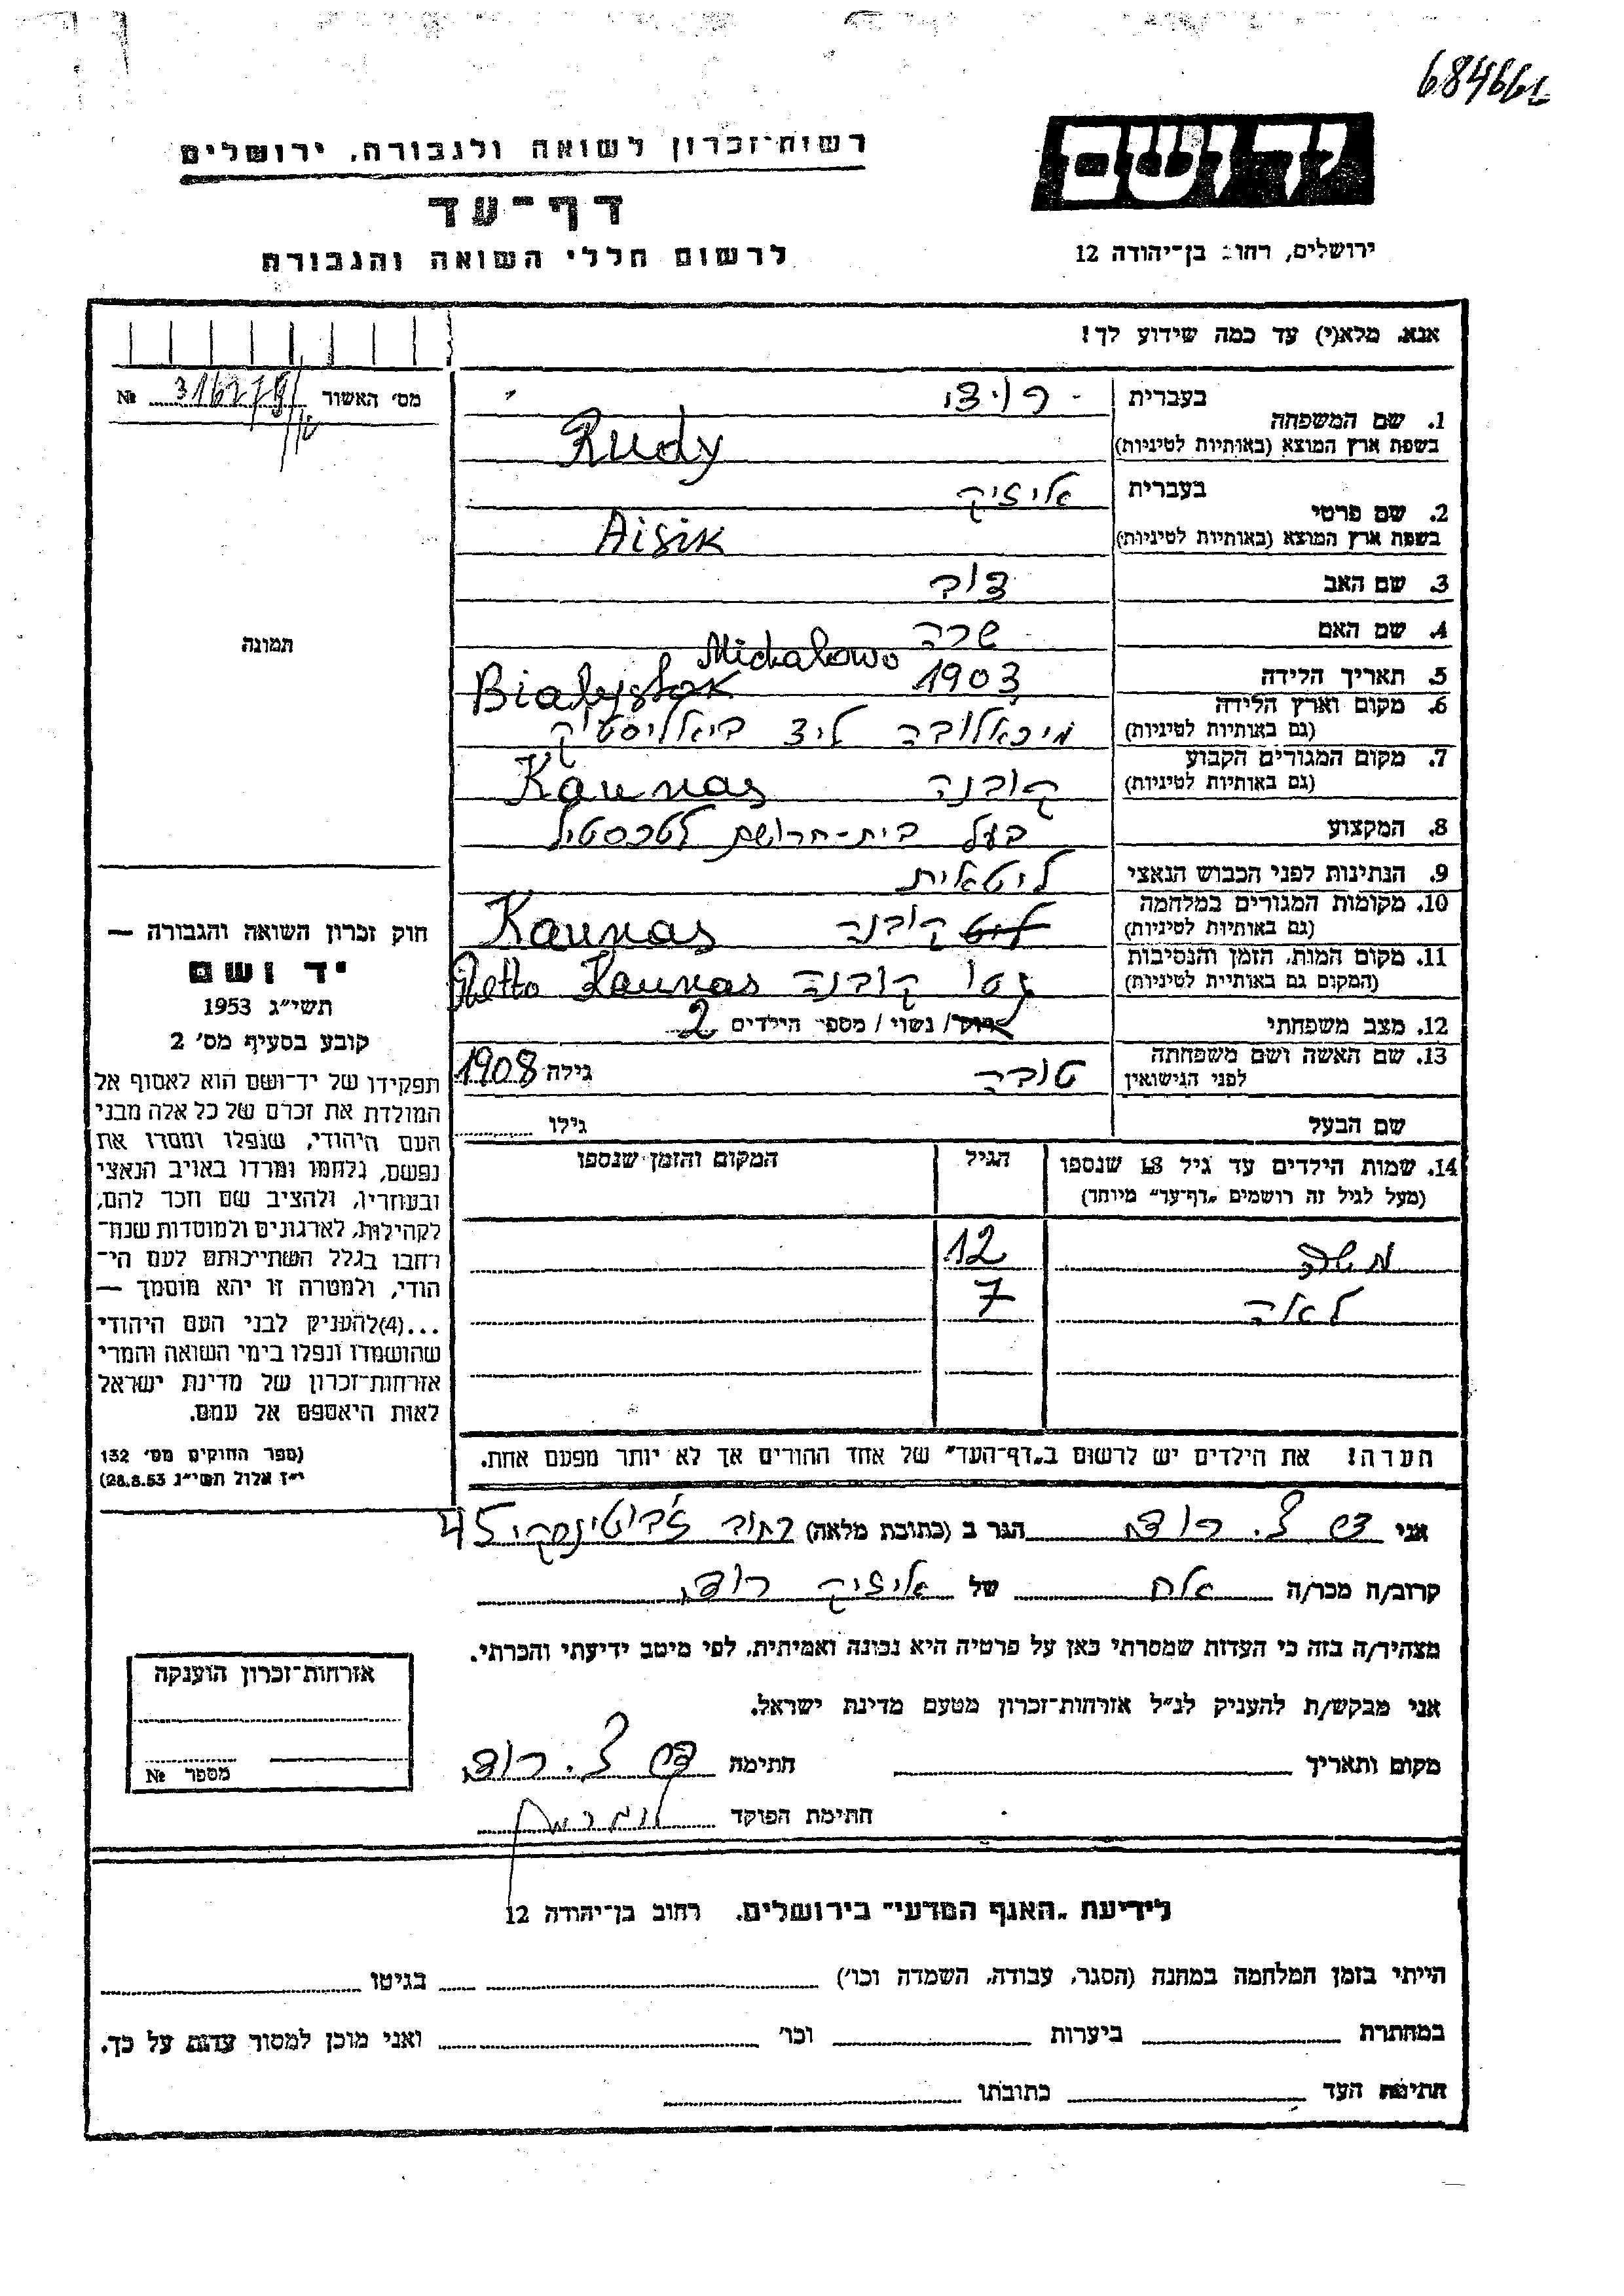 684661
יד ושם
רשות־זכרון לשואה ולגבורה, ירושלים
דף־עד
לרשום חללי השואה והגבורה
ירושלים, רחוב בן־יהודה 12
אנא, מלא(י) עד כמה שידוע לך!
מס׳ האשור № 316279/
1. שם המשפחה
בעברית רודי
בשפת ארץ המוצא (באותיות לטיניות) Rudy
2. שם פרטי
בעברית אייזיק
בשפת ארץ המוצא (באותיות לטיניות) Aisik
3. שם האב דוב
4. שם האם שרה
5. תאריך הלידה 1903
6. מקום וארץ הלידה Michalowo Bialystok
(גם באותיות לטיניות) מיכאלובה ליד ביאליסטוק
7. מקום המגורים הקבוע
(גם באותיות לטיניות) קובנה Kaunas
8. המקצוע בעל בית-חרושת לטכסטיל
9. הנתינות לפני הכבוש הנאצי ליטאית
10. מקומות המגורים במלחמה
(גם באותיות לטיניות) קובנה Kaunas
11. מקום המות, הזמן והנסיבות
(המקום גם באותיית לטיניות) גטו קובנה Ghetto Kaunas
12. מצב משפחתי רווק/ נשוי / מספר הילדים 2
13. שם האשה ושם משפחתה
לפני הנישואין טובה גילה 1908
שם הבעל גילו
14. שמות הילדים עד גיל 18 שנספו
(מעל לגיל זה רושמים „דף־עד״ מיוחד)
הגיל
המקום והזמן שנספו
משה 12
לאה 7
הערה! את הילדים יש לרשום ב„דף־העד״ של אחד ההורים אך לא יותר מפעם אחת.
תמונה
חוק זכרון השואה והגבורה —
יד ושם
תשי״ג 1953
קובע בסעיף מס׳ 2
תפקידו של יד־ושם הוא לאסוף אל
המולדת את זכרם של כל אלה מבני
העם היהודי, שנפלו ומסרו את
נפשם, נלחמו ומרדו באויב הנאצי
ובעוזריו, ולהציב שם וזכר להם,
לקהילות, לארגונים ולמוסדות שנח־
רבו בגלל השתייכותם לעם הי־
הודי, ולמטרה זו יהא מוסמך —
...(4)להעניק לבני העם היהודי
שהושמדו ונפלו בימי השואה והמרי
אזרחות־זכרון של מדינת ישראל
לאות היאספם אל עמם.
(ספר החוקים מס׳ 132
י״ז אלול תשי״ג 28.8.53)
אני רודי הגר ב (כתובת מלאה) רחוב ז'בוטינסקי 45
קרוב/ה מכר/ה אח של אייזיק רודי
מצהיר/ה בזה כי העדות שמסרתי כאן על פרטיה היא נכונה ואמיתית, לפי מיטב ידיעתי והכרתי.
אני מבקש/ת להעניק לנ״ל אזרחות־זכרון מטעם מדינת ישראל.
מקום ותאריך חתימה רודי
חתימת הפוקד
אזרחות־זכרון הוענקה
מספר №
לידיעת „האגף המדעי״ בירושלים, רחוב בן־יהודה 12
הייתי בזמן המלחמה במחנה (הסגר, עבודה, השמדה וכו׳) בגיטו
במחתרת ביערות וכו׳ ואני מוכן למסור עדות על כך.
חתימת העד כתובתו